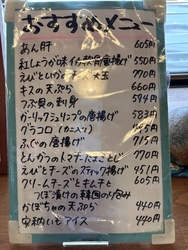 おすすめメニュー
あん肝 605円
紅しょうが味イカ軟骨唐揚げ 550円
えびといかの 大玉 770円
キスの天ぷら 660円
つぶ貝の刺身 594円
ガーリックシュリンプの唐揚げ 583円
グラコロ(カニ入り) 455円
ふぐの唐揚げ 715円
とんかつのトマトたまごとじ 770円
えびとチーズのスティック揚げ 451円
クリームチーズとキムチと 605円
つぼ漬けの韓国のり包み
かぼちゃの天ぷら 440円
安納いもアイス 440円